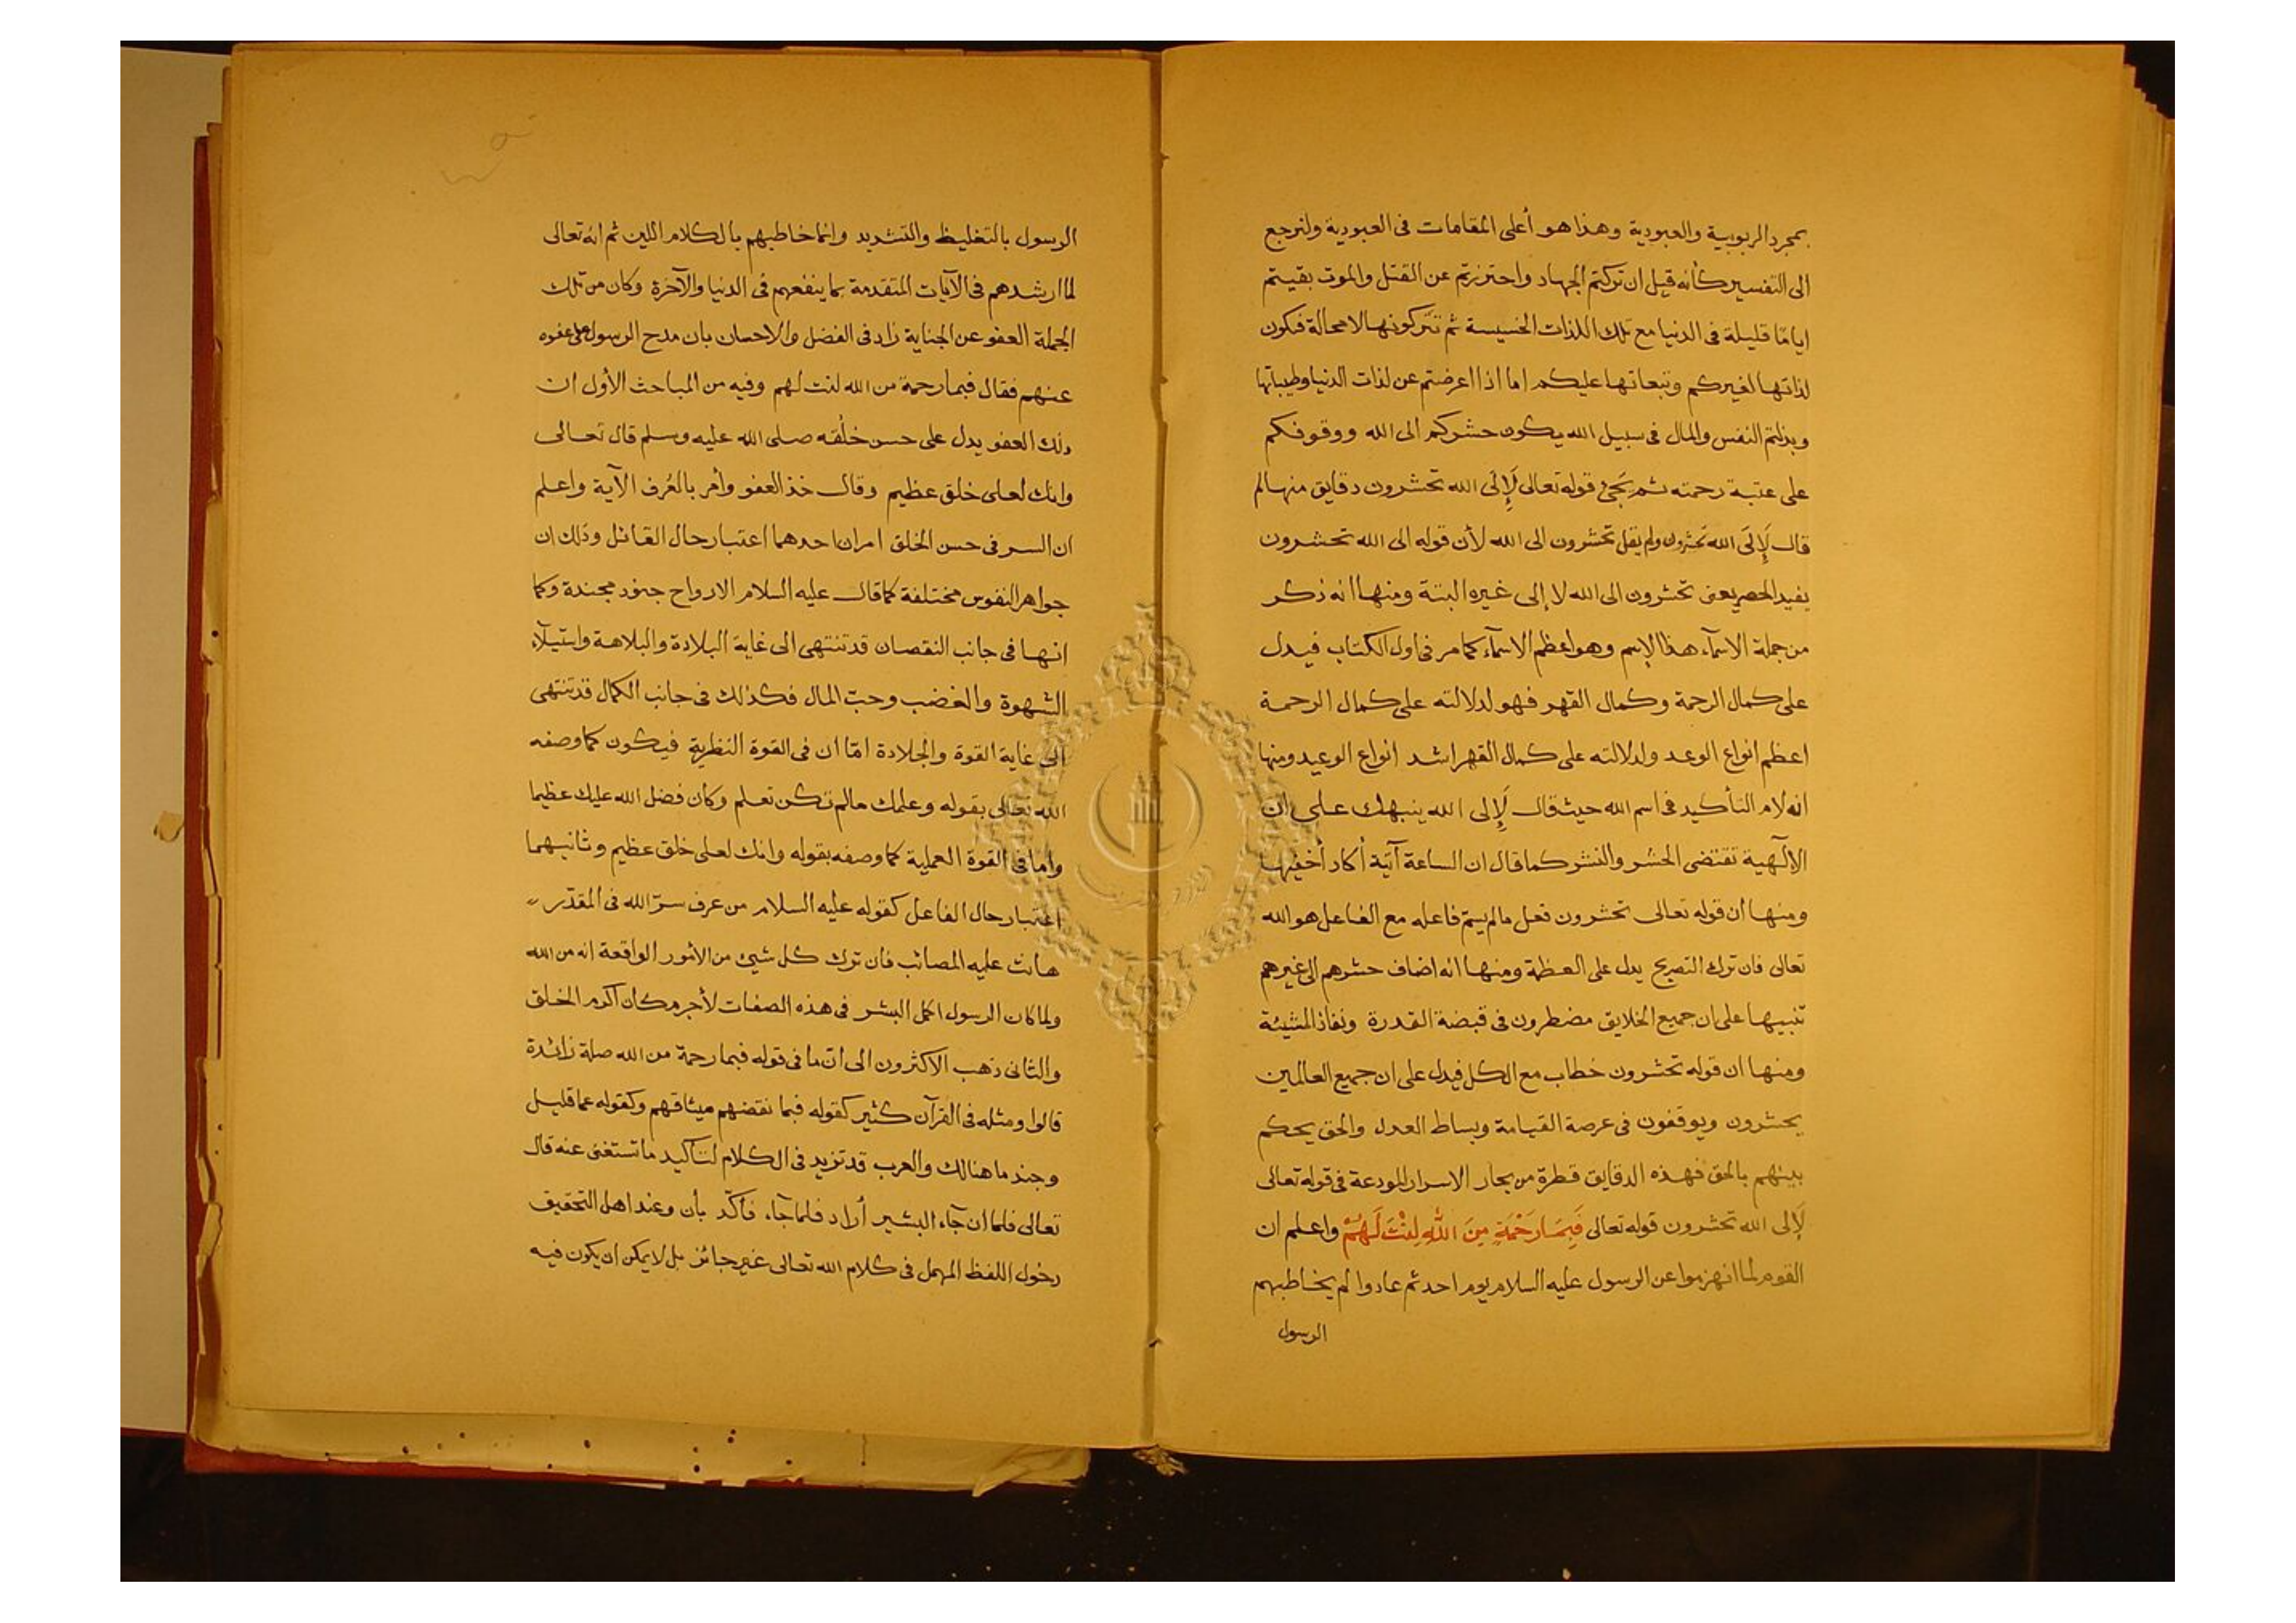 بمجرد الربوبية والعبودية وهذا هو أعلى المقامات فى العبودية ولنرجع
الى التفسير كأنه قيل ان تركتم الجهاد واحترزتم عن القتل والموت بقيتم
اياما قليلة فى الدنيا مع تلك اللذات الخسيسة ثم تتركونها لا محالة فتكون
لذاتها لغيركم وتبعاتها عليكم اما اذا اعرضتم عن لذات الدنيا وطيباتها
وبذلتم النفس والمال فى سبيل الله يكون حشركم الى الله ووقوفكم
على عتبة رحمته ثم يجئ قوله تعالى لَإِلَى الله تحشرون دقايق منها لم
قال لَإِلَى الله تحشرون ولم يقل تحشرون الى الله لأن قوله الى الله تحشرون
يفيد الحصر يعنى تحشرون الى الله لا إلى غيره البتة ومنها انه ذكر
من جملة الاسمآء هذا الإسم وهو اعظم الاسمآء كما مر فى اول الكتاب فيدل
على كمال الرحمة وكمال القهر فهو لدلالته على كمال الرحمة
اعظم انواع الوعد ولدلالته على كمال القهر اشد انواع الوعيد ومنها
انه لام التأكيد فى اسم الله حيث قال لَإِلى الله ينبهك على ان
الإلٓهية تقتضى الحشر والنشر كما قال ان الساعة آتية أكاد أخفيها
ومنها ان قوله تعالى تحشرون فعل مالم يسمّ فاعله مع الفاعل هو الله
تعالى فان ترك التصريح يدل على العظمة ومنها انه اضاف حشرهم الى غيرهم
تنبيها على ان جميع الخلايق مضطرون فى قبضة القدرة ونفاذ المشيئة
ومنها ان قوله تحشرون خطاب مع الكل فيدل على ان جميع العالمين
يحشرون ويوقفون فى عرصة القيامة وبساط العدل والحق يحكم
بينهم بالحق فهذه الدقايق قطرة من بحار الاسرار المودعة فى قوله تعالى
لَإلى الله تحشرون قوله تعالى فَبِمَا رَحْمَةٍ مِنَ اللهِ لِنْتَ لَهُمْ واعلم ان
القوم لما انهزموا عن الرسول عليه السلام يوم احد ثم عادوا لم يخاطبهم
الرسول
الرسول بالتغليظ والتشديد وانما خاطبهم بالكلام اللين ثم انه تعالى
لما ارشدهم فى الآيات المتقدمة بما ينفعهم فى الدنيا والآخرة وكان من تلك
الجملة العفو عن الجناية زاد فى الفضل والاحسان بان مدح الرسول على عفوه
عنهم فقال فبما رحمة من الله لنت لهم وفيه من المباحث الأول ان
ذلك العفو يدل على حسن خلُقه صلى الله عليه وسلم قال تعالى
وانك لعلى خلق عظيم وقال خذ العفو وأمر بالعُرف الآية واعلم
ان السر فى حسن الخلق امران احدهما اعتبار حال القائل وذلك ان
جواهر النفوس مختلفة كما قال عليه السلام الارواح جنود مجندة وكما
انها فى جانب النقصان قد تنتهى الى غاية البلادة والبلاهة واستيلآء
الشهوة والغضب وحبّ المال فكذلك فى جانب الكمال قد تنتهى
الى غاية القوة والجلادة امّا ان فى القوة النظرية فيكون كما وصفه
الله تعالى بقوله وعلمك مالم تكن تعلم وكان فضل الله عليك عظيما
وأما فى القوة العملية كما وصفه بقوله وانك لعلى خلق عظيم وثانيهما
اعتبار حال الفاعل كقوله عليه السلام من عرف سرّ الله فى المقدّر
هانت عليه المصائب فان ترك كل شيئ من الأمور الواقعة انه من الله
ولما كان الرسول اكمل البشر فى هذه الصفات لأجرم كان اكرم الخلق
والثانى ذهب الاكثرون الى انّ ما فى قوله فبما رحمة من الله صلة زائدة
قالوا ومثله فى القرآن كثير كقوله فبما نقضهم ميثاقهم وكقوله عما قليل
وجند ما هنالك والعرب قد تزيد فى الكلام لتأكيد ما تستغنى عنه قال
تعالى فلما ان جآء البشير أراد فلما جآء فأكّد بأن وعند اهل التحقيق
دخول اللفظ المهمل فى كلام الله تعالى غير جائز بل لا يمكن ان يكون فيه